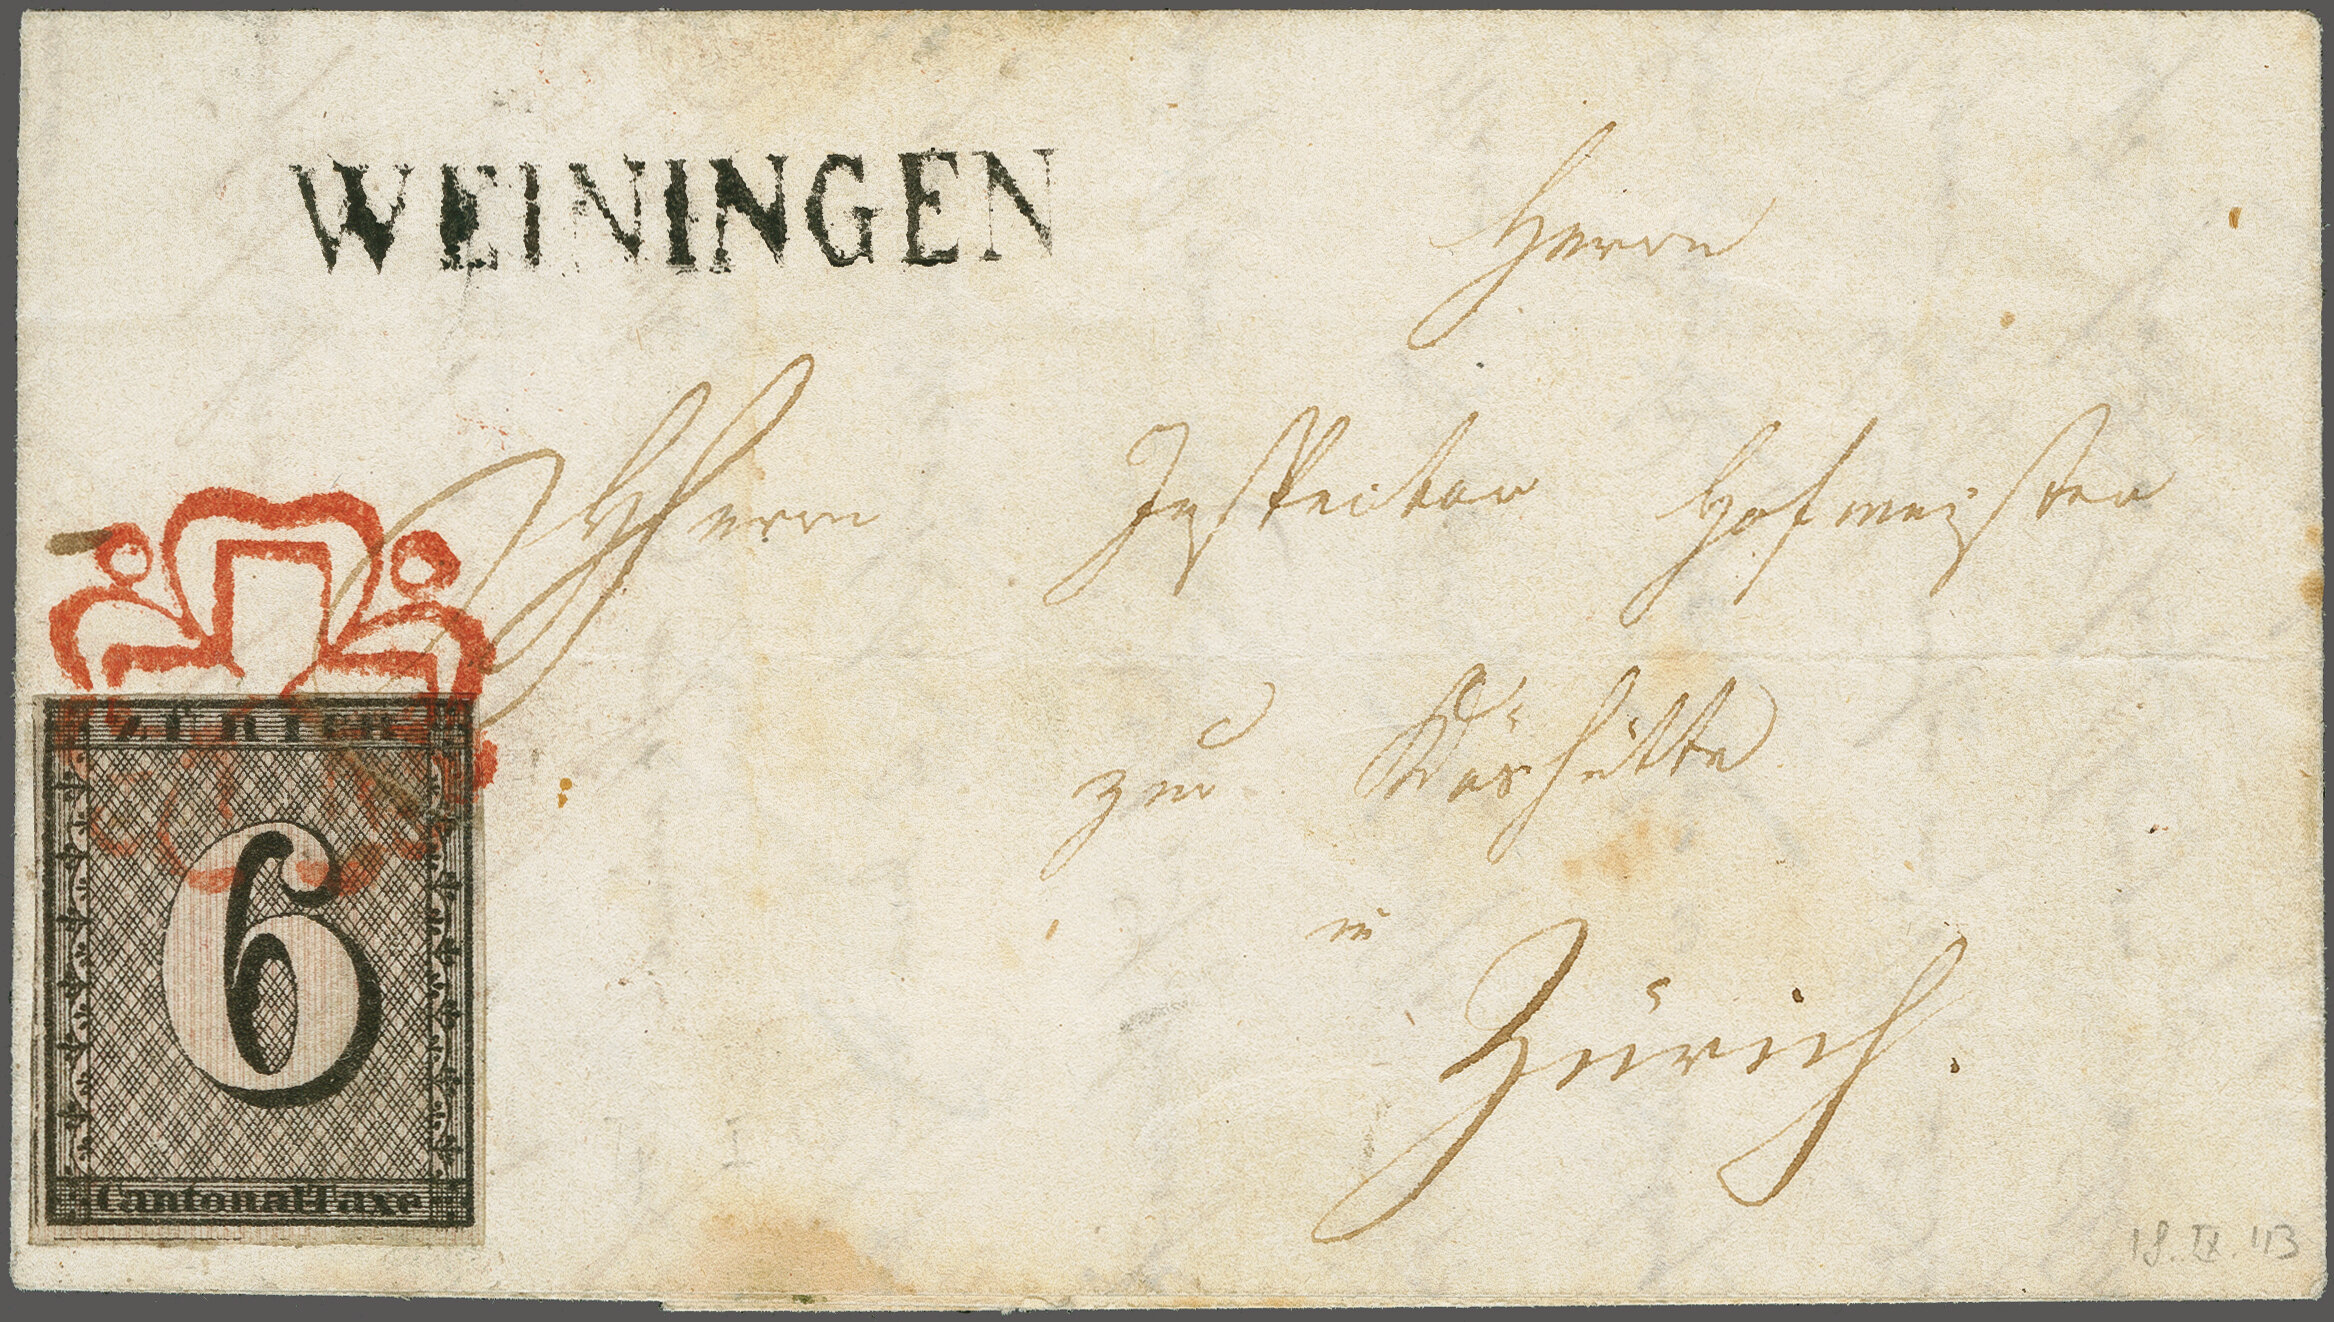 WEININGEN
Herrn
Herrn Inspector Hofmeister
zur
in
Zürich.
ZÜRICH
6
Cantonal-Taxe
18. IX. 43